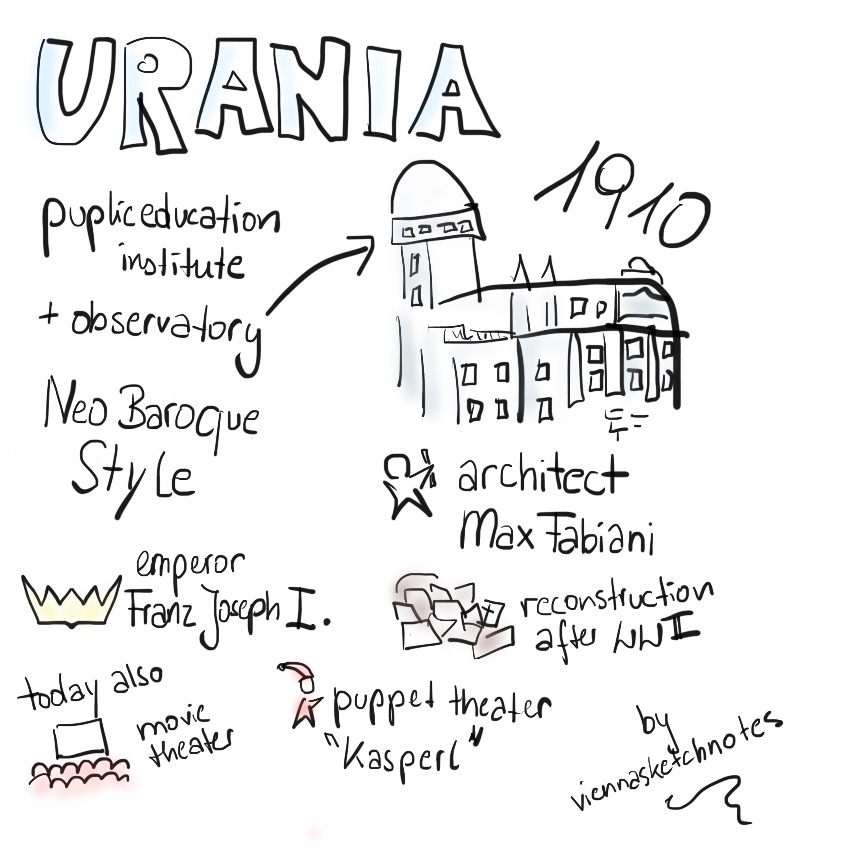 URANIA
1910
pupliceducation
institute
+ observatory
Neo Baroque
Style
architect
Max Fabiani
emperor
Franz Joseph I.
reconstruction
after WWI
today also
movie
theater
puppet theater
"Kasperl"
by
viennasketchnotes